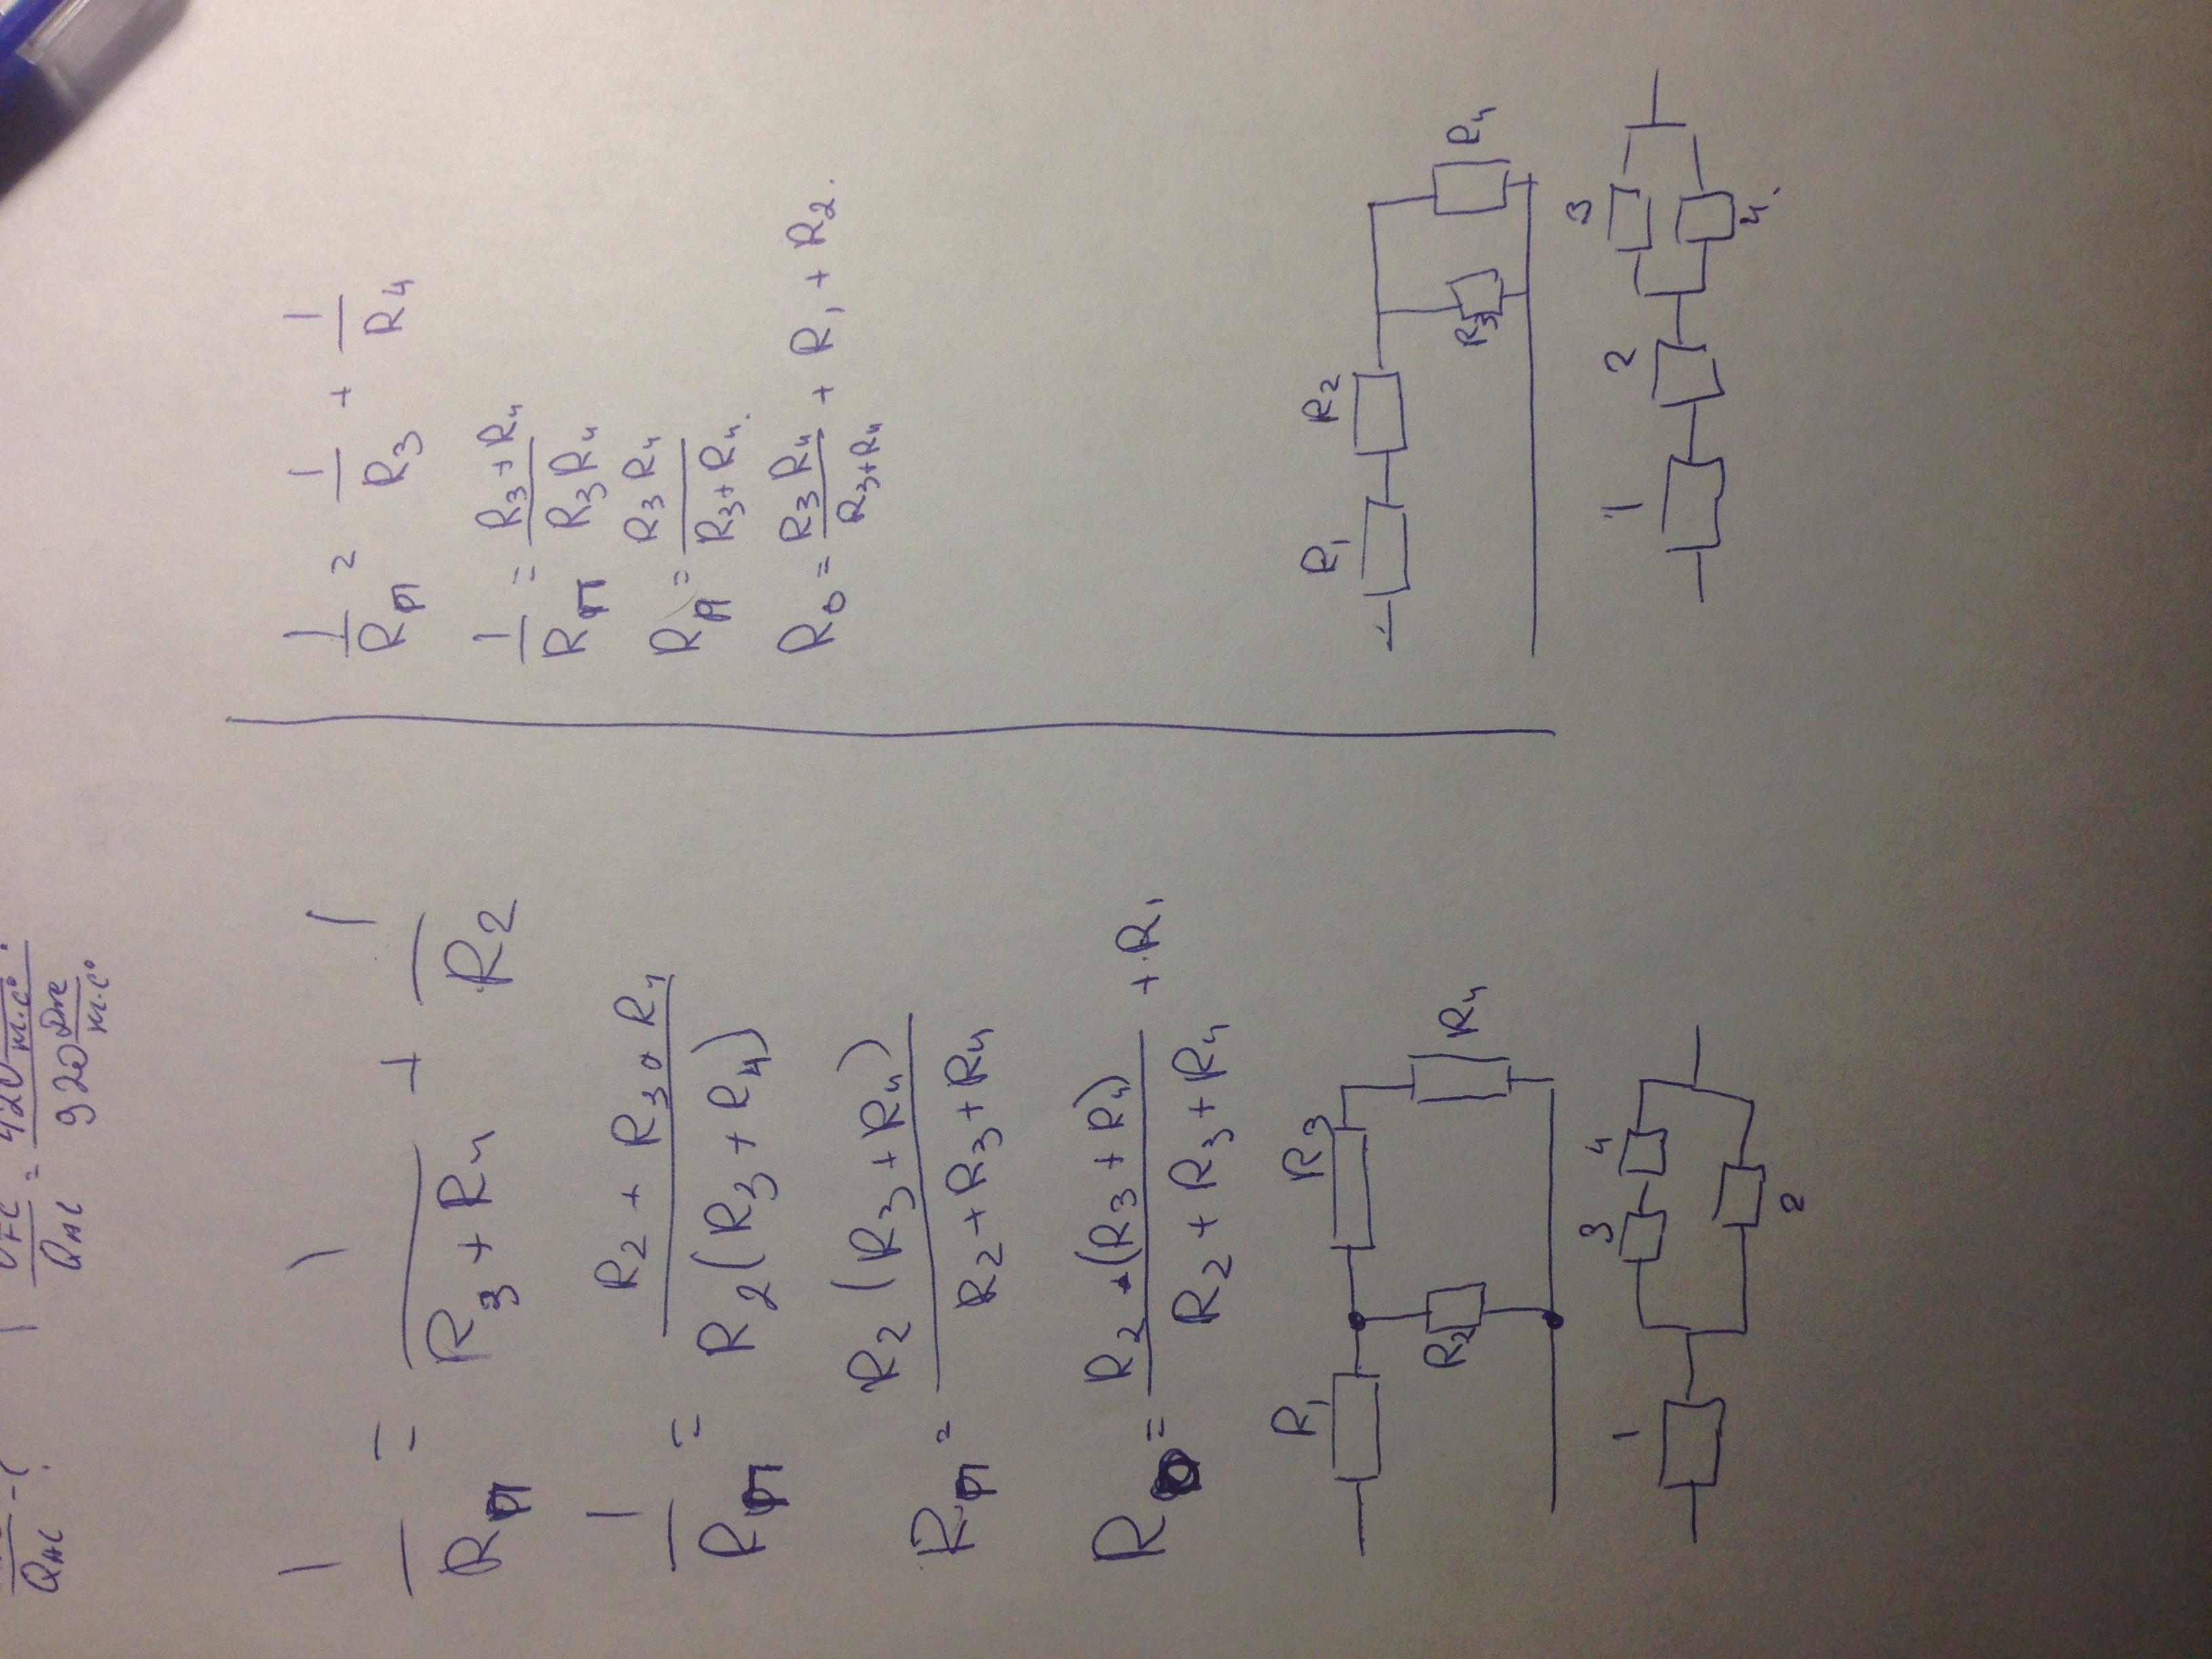 Q_нс - ?
Q_нс = 920 Дж/м·с°
1/R_п = 1/(R3+R4) + 1/R2
1/R_п = (R2+R3+R4)/(R2(R3+R4))
R_п = R2(R3+R4)/(R2+R3+R4)
R0 = R2·(R3+R4)/(R2+R3+R4) + R1
R1 R3
R2 R4
1 3 4
2
1/R_п = 1/R3 + 1/R4
1/R_п = (R3+R4)/(R3R4)
R_п = R3R4/(R3+R4).
R0 = R3R4/(R3+R4) + R1 + R2.
R1 R2
R3 R4
1 2 3
4.